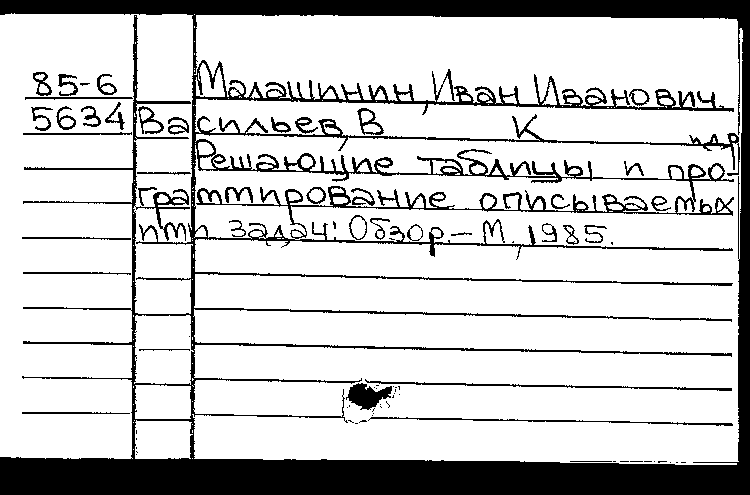 85-6 Малашинин, Иван Иванович.
5634 Васильев, В К
и др
Решающие таблицы и про-
граммирование описываемых
ими задач: Обзор.-М., 1985.